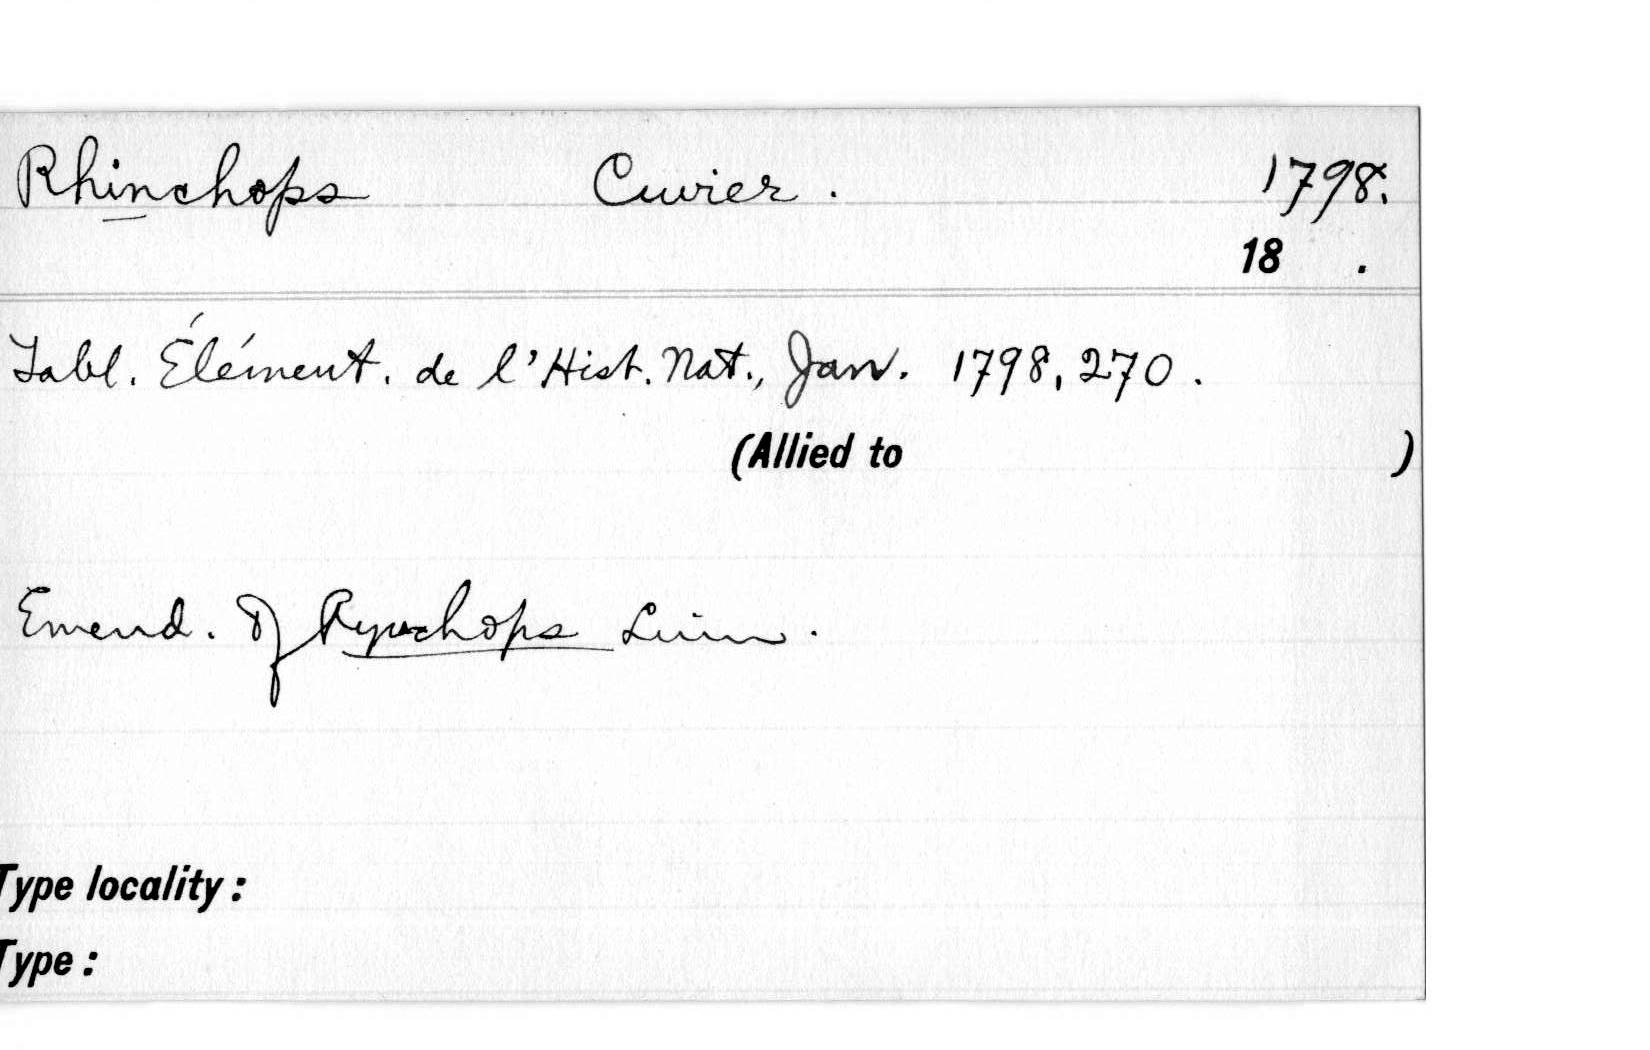 Rhinchops Cuvier. 1798.
18 .
Tabl. Élément. de l'Hist. Nat., Jan. 1798, 270.
(Allied to )
Emend. of Rynchops Linn.
Type locality:
Type: